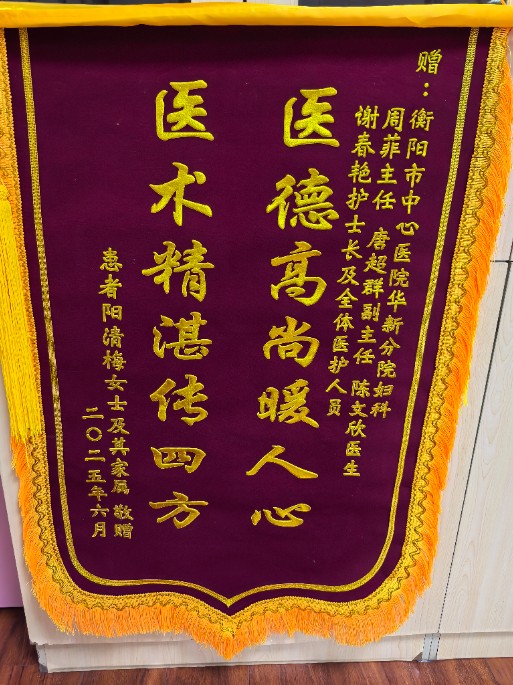 赠：
衡阳市中心医院华新分院妇科
周菲主任 唐超群副主任 陈文欣医生
谢春艳护士长及全体医护人员
医德高尚暖人心
医术精湛传四方
患者阳清梅女士及其家属 敬赠
二〇二五年六月